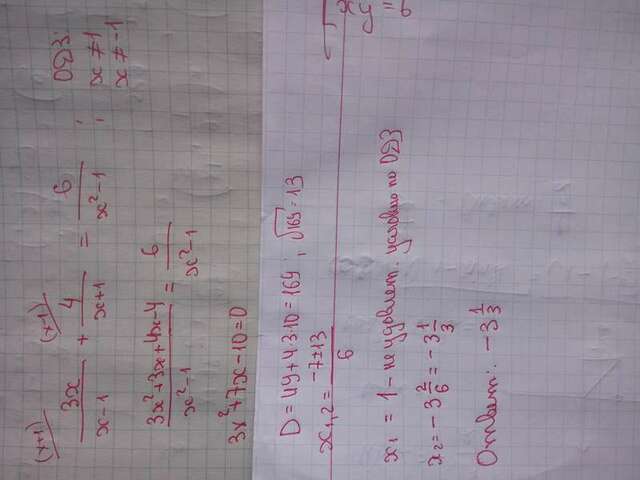 (x+1) (x-1)
3x/(x-1) + 4/(x+1) = 6/(x²-1) ; ОДЗ:
x ≠ 1
x ≠ -1
(3x²+3x+4x-4)/(x²-1) = 6/(x²-1)
3x²+7x-10=0
D = 49+4·3·10=169 ; √169=13
x₁,₂ = (-7±13)/6
x₁ = 1 - не удовлет. условию по ОДЗ
x₂ = -3 2/6 = -3 1/3
Ответ: -3 1/3